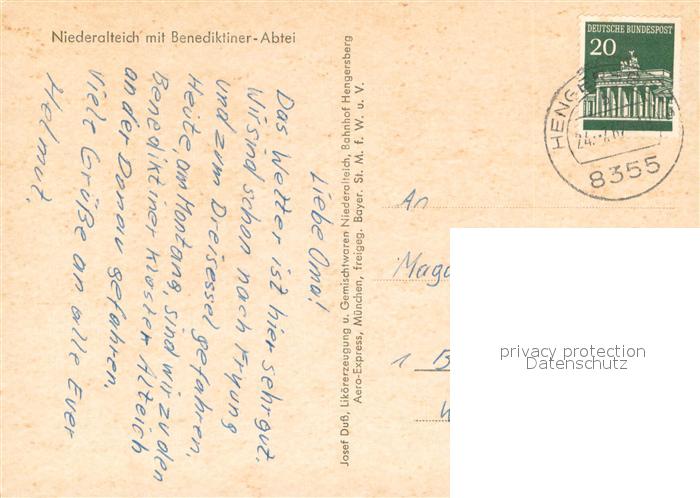 Niederalteich mit Benediktiner-Abtei
Liebe Oma!
Das Wetter ist hier sehr gut.
Wi sind schon nach Fryung
und zum Dreisessel gefahren.
Heite, am Montang, sind wir zu den
Benediktiner Kloster Alteich
an der Donau gefahren.
Viele Grüße an alle Euer
Helmut.
Josef Duß, Likörerzeugung u. Gemischtwaren Niederalteich, Bahnhof Hengersberg
Aero-Express, München, freigeg. Bayer. St. M. f. W. u. V.
DEUTSCHE BUNDESPOST
20
HENGE
24.
8355
An
Magd
1 B
W
privacy protection
Datenschutz